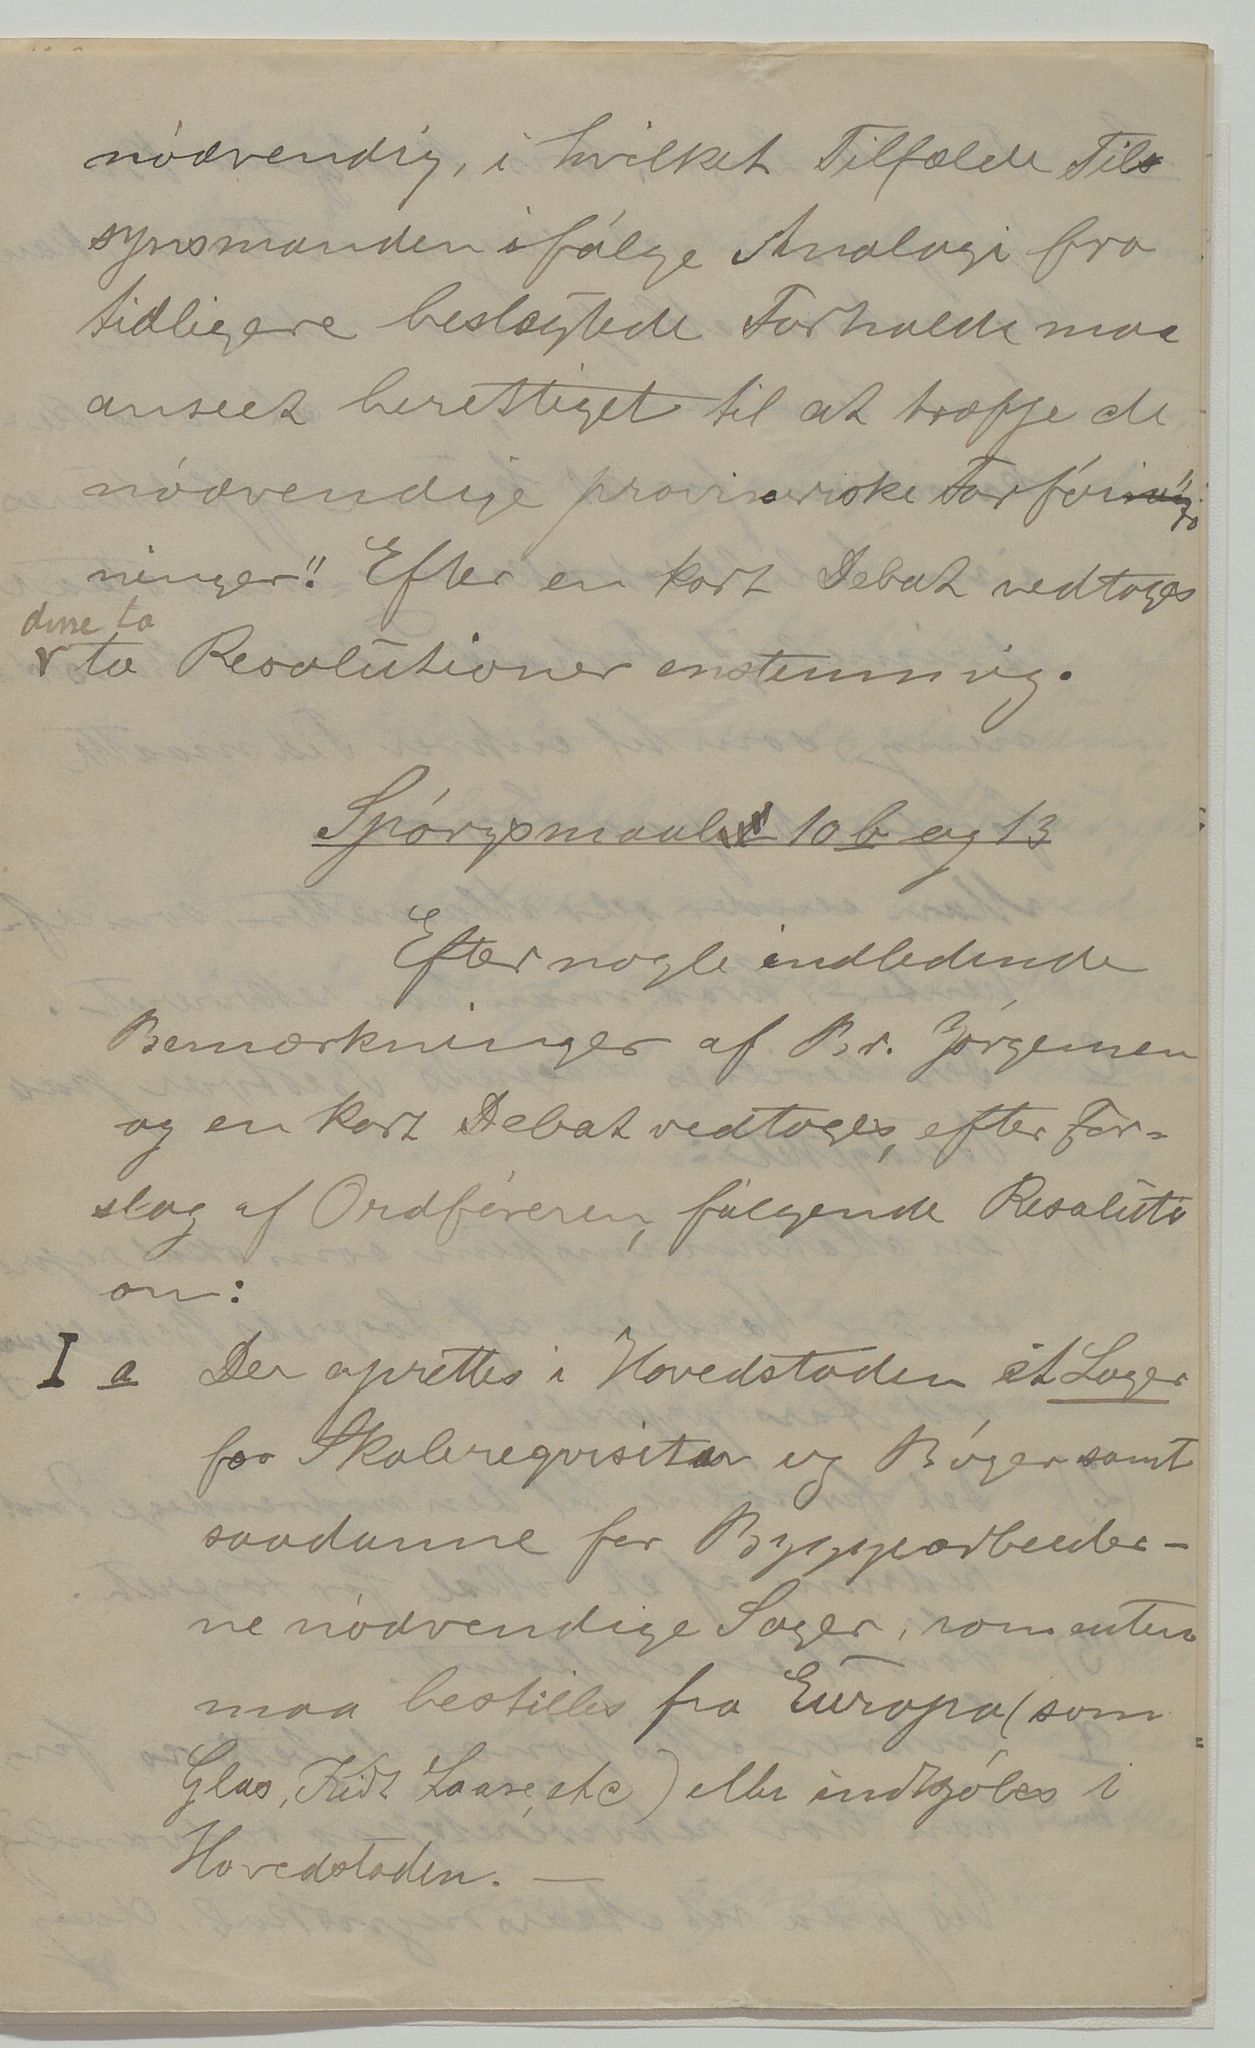 nódvendig, i hvilket Tilfælde Til-
synsmanden ifólge Analogi fra
tidligere beslægtede Forholde maa
anseet berettiget til at træffe de
nódvendige provisoriske Forfói-
ninger". Efter en kort Debat vedtoges
disse to
to Resolutioner enstemmig.
Spórgsmaal 10 b og 13
Efter nogle indledende
Bemærkninger af Br. Jórgensen
og en kort Debat vedtoges, efter For-
slag af Ordfóreren, fólgende Resoluti
on:
I a Der oprettes i Hovedstaden et Lager
for Skolereqvisiter og Bóger samt
saadanne for Byggearbeider-
ne nódvendige Sager, som enten
maa bestilles fra Europa (som
Glas, Kidt Laase, etc) eller indkjóbes i
Hovedstaden. —